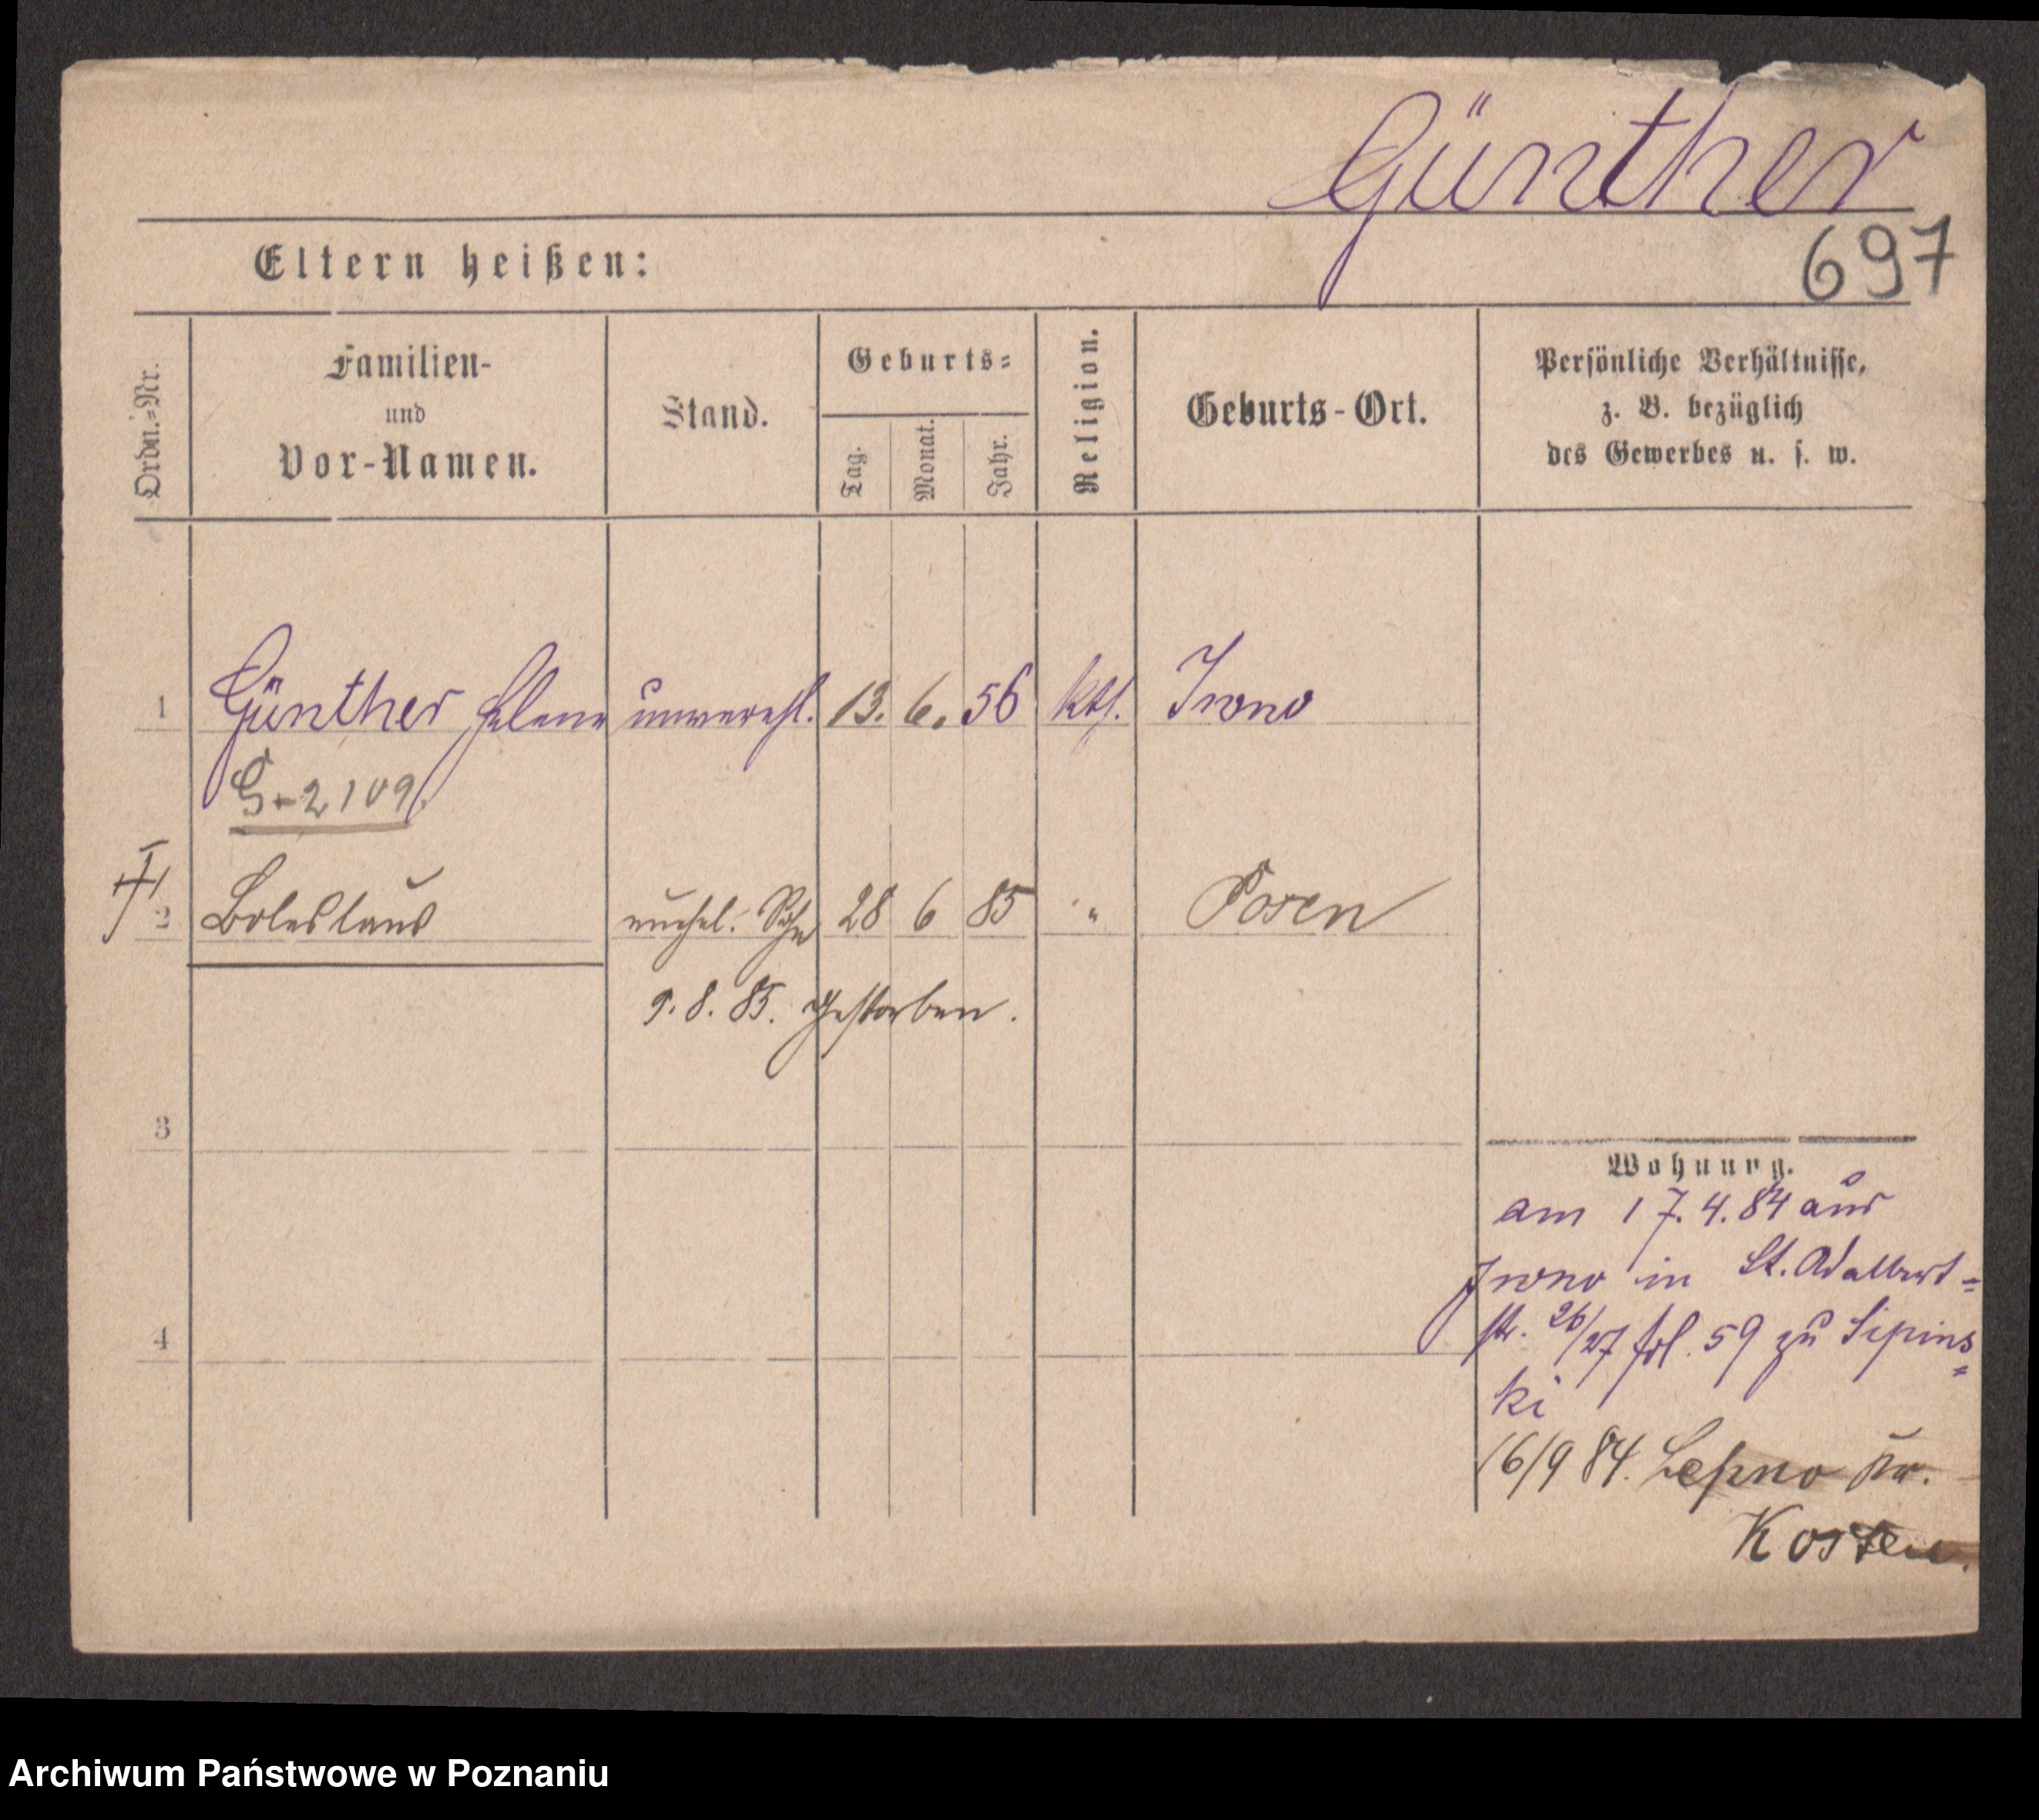 Günther
Eltern heißen:
697
Ordn.=Nr.
Familien-
und
Vor-Namen.
Stand.
Geburts=
Tag.
Monat.
Jahr.
Religion.
Geburts-Ort.
Persönliche Verhältnisse,
z. B. bezüglich
des Gewerbes u. s. w.
1 Günther, Helene unverehl. 13. 6. 56 kth. Iwno
G-2109.
2 Boleslaus unehel. Sohn 28 6 85 " Posen
9. 8. 85. gestorben.
3
4
Wohnung.
am 17. 4. 84 aus
Iwno in St. Adalbert=
str. 26/27 frl. 59 zu Lipins=
ki
16/9 84. Kr.
Kosten.
Archiwum Państwowe w Poznaniu